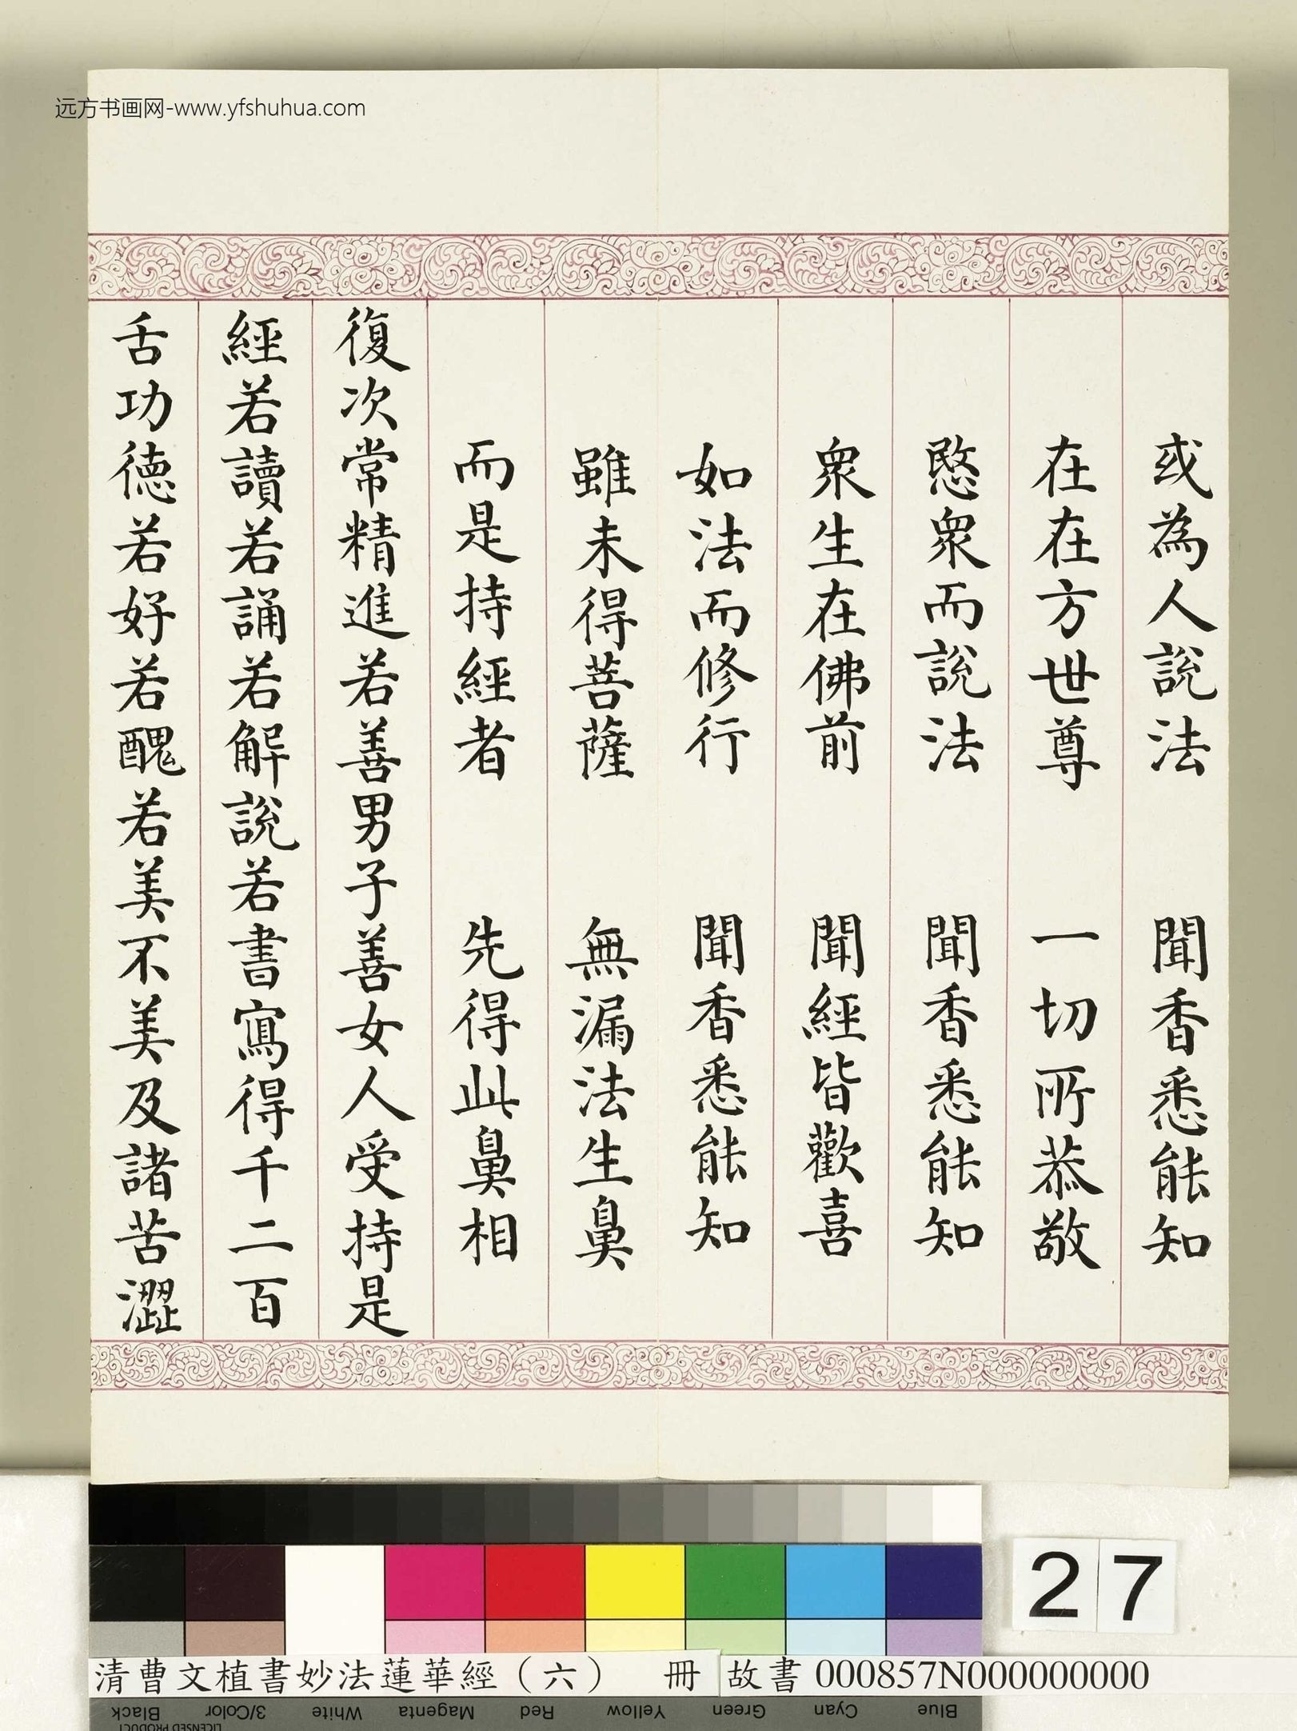 远方书画网-www.yfshuhua.com
或為人說法 聞香悉能知
在在方世尊 一切所恭敬
愍衆而說法 聞香悉能知
衆生在佛前 聞經皆歡喜
如法而修行 聞香悉能知
雖未得菩薩 無漏法生鼻
而是持經者 先得此鼻相
復次常精進若善男子善女人受持是
經若讀若誦若解說若書寫得千二百
舌功德若好若醜若美不美及諸苦澀
27
清曹文植書妙法蓮華經（六） 冊 故書 000857N000000000
Black 3/Color White Magenta Red Yellow Green Cyan Blue
LICENSED PRODUCT